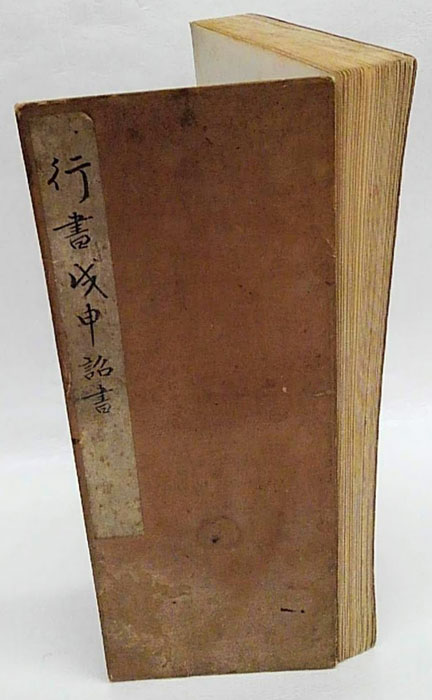 行書戊申詔書